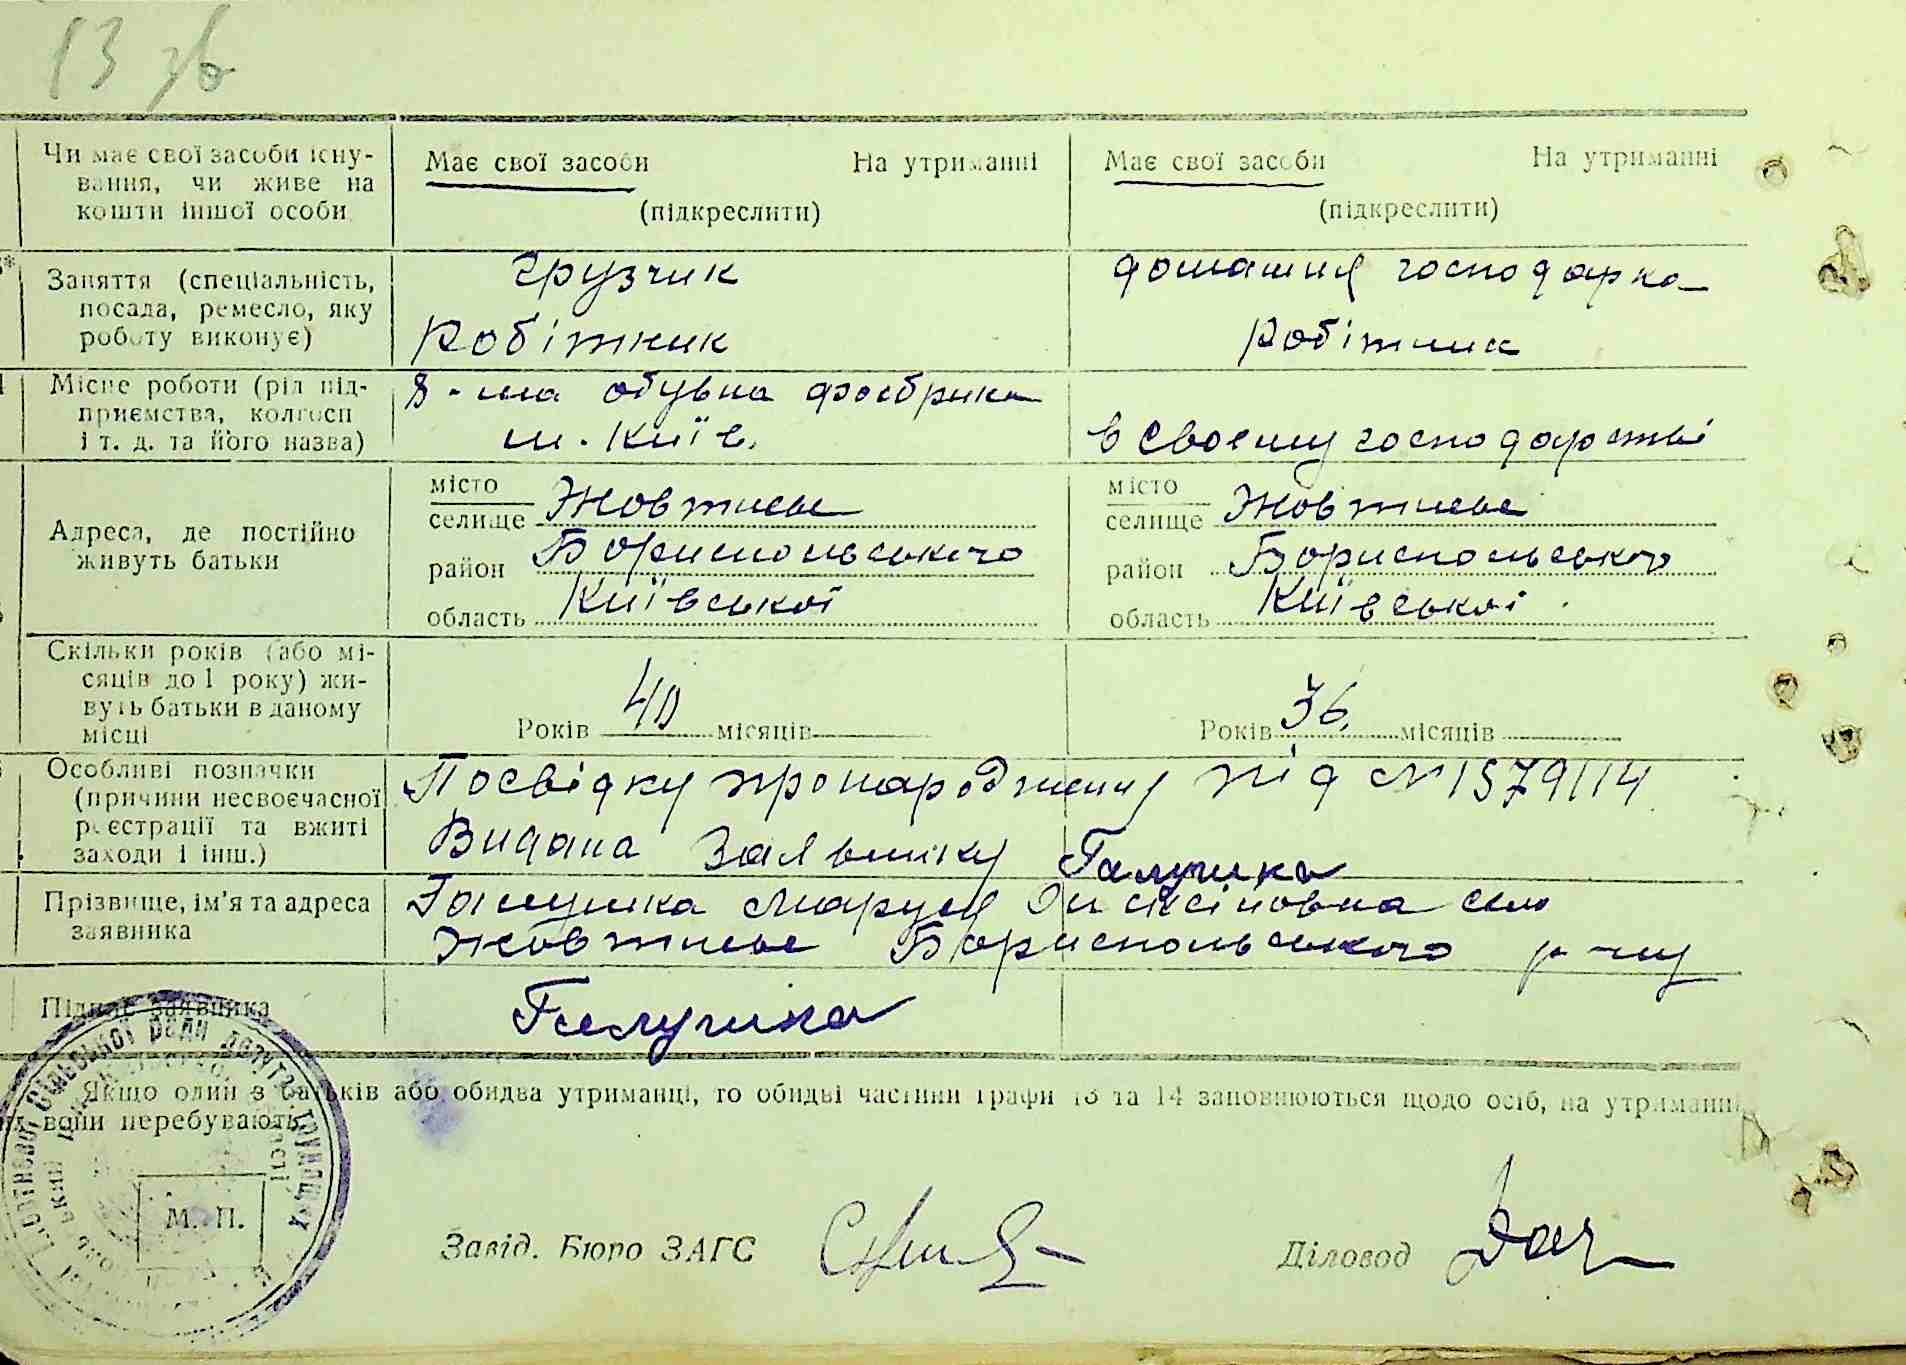 13 зв
Чи має свої засоби існу-
вання, чи живе на
кошти іншої особи
Має свої засоби На утриманні
(підкреслити)
Має свої засоби На утриманні
(підкреслити)
Заняття (спеціальність,
посада, ремесло, яку
роботу виконує)
грузчик
Робітник
домашня господарка
Робітник
Місце роботи (рід під-
приємства, колгосп
і т. д. та його назва)
8-ма обувна фабрика
м. Київ.
в своему господарстві
Адреса, де постійно
живуть батьки
місто
селище Жовтневе
район Бориспольського
область Київської
місто
селище Жовтневе
район Бориспольського
область Київської
Скільки років (або мі-
сяців до 1 року) жи-
вуть батьки в даному
місці
Років 40 місяців
Років 36 місяців
Особливі позначки
(причини несвоєчасної
реєстрації та вжиті
заходи і інш.)
Посвідку про народження під № 1579114
Видана Заявнику Галушка
Прізвище, ім'я та адреса
заявника
Галушка Маруся село
Жовтневе Бориспольського р-ну
Підпис заявника
Галушка
Якщо один з батьків або обидва утриманці, то обидві частини графи 13 та 14 заповнюються щодо осіб, на утриманні
вони перебувають.
сільської ради депут. трудящих
М. П.
Завід. Бюро ЗАГС
Діловод